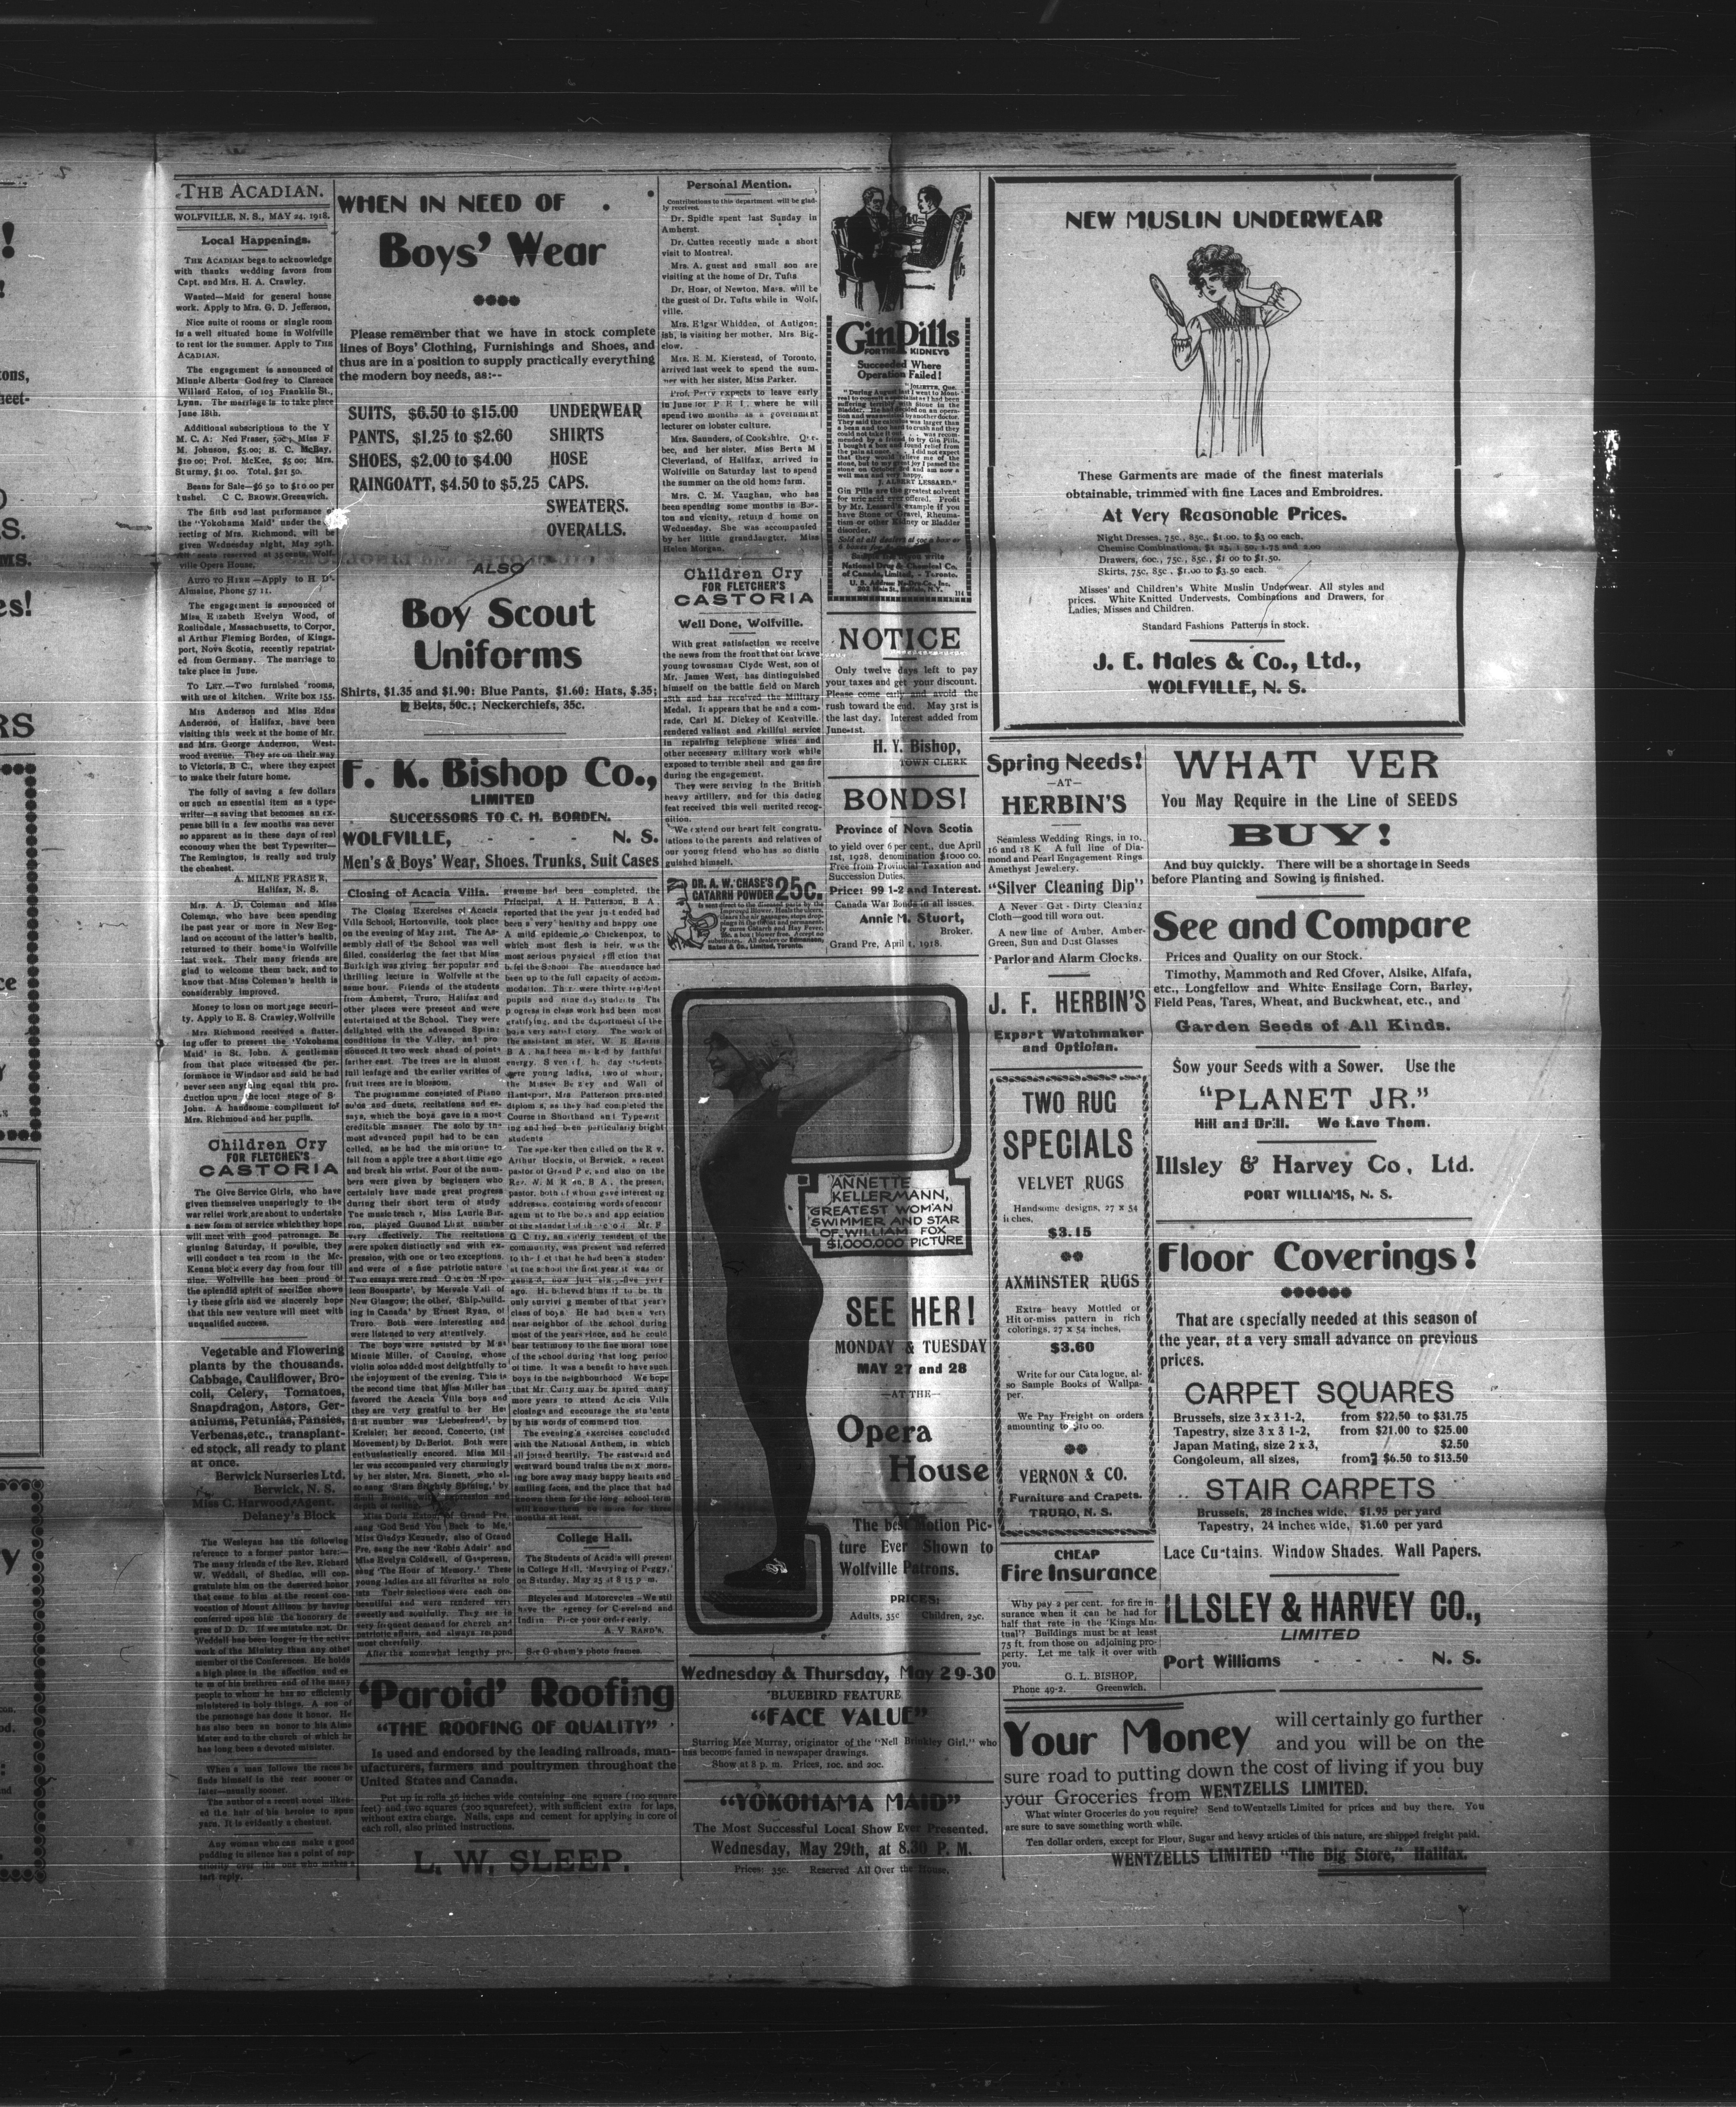 THE ACADIAN.
WOLFVILLE, N. S., MAY 24, 1918.
Local Happenings.
THE ACADIAN begs to acknowledge
with thanks wedding favors from
Capt. and Mrs. H. A. Crawley.
Wanted—Maid for general house
work. Apply to Mrs. G. D. Jefferson,
Nice suite of rooms or single room
in a well situated home in Wolfville
to rent for the summer. Apply to THE
ACADIAN.
The engagement is announced of
Minnie Alberta Godfrey to Clarence
Willard Eaton, of 103 Franklin St.,
Lynn. The marriage is to take place
June 18th.
Additional subscriptions to the Y
M. C. A: Ned Fraser, 50c; Miss F
M. Johnson, $5.00; H. C. McKay,
$10 00; Prof. McKee, $5 00; Mrs.
Sturmy, $1 00. Total, $21 50.
Beans for Sale—$6 50 to $10 00 per
bushel. C C. BROWN, Greenwich.
The fifth and last performance of
the "Yokohama Maid" under the
recting of Mrs. Richmond, will be
given Wednesday night, May 29th.
ville Opera House.
AUTO TO HIRE—Apply to H. D'-
Almaine, Phone 57 11.
The engagement is announced of
Miss Elizabeth Evelyn Wood, of
Roslindale, Massachusetts, to Corpor
al Arthur Fleming Borden, of Kings-
port, Nova Scotia, recently repatriat-
ed from Germany. The marriage to
take place in June.
TO LET.—Two furnished rooms,
with use of kitchen. Write box 155.
Mrs Anderson and Miss Edna
Anderson, of Halifax, have been
visiting this week at the home of Mr.
and Mrs. George Anderson, West-
wood avenue. They are on their way
to Victoria, B C., where they expect
to make their future home.
The folly of saving a few dollars
on such an essential item as a type-
writer—a saving that becomes an ex-
pense bill in a few months was never
so apparent as in these days of real
economy when the best Typewriter—
The Remington, is really and truly
the cheapest.
A. MILNE FRASER,
Halifax, N. S.
Mrs. A. D. Coleman and Miss
Coleman, who have been spending
the past year or more in New Eng-
land on account of the latter's health,
returned to their home in Wolfville
last week. Their many friends are
glad to welcome them back, and to
know that Miss Coleman's health is
considerably improved.
Money to loan on mortgage securi-
ty. Apply to E. S. Crawley, Wolfville
Mrs. Richmond received a flatter-
ing offer to present the 'Yokohama
Maid' in St. John. A gentleman
from that place witnessed the per-
formance in Windsor and said he had
never seen anything equal this pro-
duction upon the local stage of S-
John. A handsome compliment to
Mrs. Richmond and her pupils.
Children Cry
FOR FLETCHER'S
CASTORIA
The Give Service Girls, who have
given themselves unsparingly to the
war relief work, are about to undertake
a new form of service which they hope
will meet with good patronage. Be
ginning Saturday, if possible, they
will conduct a tea room in the Mc-
Kenna block every day from four till
nine. Wolfville has been proud of
the splendid spirit of sacrifice shown
by these girls and we sincerely hope
that this new venture will meet with
unqualified success.
Vegetable and Flowering
plants by the thousands.
Cabbage, Cauliflower, Bro-
coli, Celery, Tomatoes,
Snapdragon, Astors, Ger-
aniums, Petunias, Pansies,
Verbenas, etc., transplant-
ed stock, all ready to plant
at once.
Berwick Nurseries Ltd.
Berwick, N. S.
Miss C. Harwood, Agent.
Delaney's Block
The Wesleyan has the following
reference to a former pastor here:—
The many friends of the Rev. Richard
W. Weddall, of Shediac, will con-
gratulate him on the deserved honor
that came to him at the recent con-
vocation of Mount Allison by having
conferred upon him the honorary de
gree of D. D. If we mistake not, Dr
Weddall has been longer in the active
work of the Ministry than any other
member of the Conferences. He holds
a high place in the affection and es
te m of his brethren and of the many
people to whom he has so efficiently
ministered in holy things. A son of
the parsonage has done it honor. He
has also been an honor to his Alma
Mater and to the church of which he
has long been a devoted minister.
When a man follows the races he
finds himself in the rear sooner or
later—usually sooner.
The author of a recent novel liken-
ed the hair of his heroine to spun
yarn. It is evidently a chestnut.
Any woman who can make a good
pudding in silence has a point of sup-
eriority over the one who makes a
tart reply.
WHEN IN NEED OF
Boys' Wear
Please remember that we have in stock complete
lines of Boys' Clothing, Furnishings and Shoes, and
thus are in a position to supply practically everything
the modern boy needs, as:--
SUITS, $6.50 to $15.00 UNDERWEAR
PANTS, $1.25 to $2.60 SHIRTS
SHOES, $2.00 to $4.00 HOSE
RAINGOATT, $4.50 to $5.25 CAPS.
SWEATERS.
OVERALLS.
ALSO
Boy Scout
Uniforms
Shirts, $1.35 and $1.90: Blue Pants, $1.60: Hats, $.35;
Belts, 50c.; Neckerchiefs, 35c.
F. K. Bishop Co.,
LIMITED
SUCCESSORS TO C. H. BORDEN.
WOLFVILLE, - - - N. S.
Men's & Boys' Wear, Shoes, Trunks, Suit Cases
Closing of Acacia Villa.
The Closing Exercises of Acacia
Villa School, Hortonville, took place
on the evening of May 21st. The As-
sembly Hall of the School was well
filled, considering the fact that Miss
Burleigh was giving her popular and
thrilling lecture in Wolfville at the
same hour. Friends of the students
from Amherst, Truro, Halifax and
other places were present and were
entertained at the School. They were
delighted with the advanced Spring
conditions in the Valley, and pro
nounced it two week ahead of points
farther east. The trees are in almost
full leafage and the earlier varities of
fruit trees are in blossom.
The programme consisted of Piano
solos and duets, recitations and es-
says, which the boys gave in a most
creditable manner. The solo by the
most advanced pupil had to be can
celled, as he had the misfortune to
fall from a apple tree a short time ago
and break his wrist. Four of the num-
bers were given by beginners who
certainly have made great progress
during their short term of study
The music teacher, Miss Laurie Bar-
ron, played Gounod Liszt number
very effectively. The recitations
were spoken distinctly and with ex-
pression, with one or two exceptions.
and were of a fine patriotic nature
Two essays were read One on 'Napo-
leon Bonaparte', by Mervale Vail of
New Glasgow; the other, 'Ship-build-
ing in Canada' by Ernest Ryan, of
Truro. Both were interesting and
were listened to very attentively.
The boys were assisted by Miss
Minnie Miller, of Canning, whose
violin solos added most delightfully to
the enjoyment of the evening. This is
the second time that Miss Miller has
favored the Acacia Villa boys and
they are very greatful to her Her
first number was 'Liebesfreud', by
Kreisler; her second, Concerto, (1st
Movement) by DeBeriot. Both were
enthusiastically encored. Miss Mil
ler was accompanied very charmingly
by her sister, Mrs. Sinnett, who al-
so sang 'Stars Brightly Shining,' by
depth of feeling.
Miss Doris Eaton, of Grand Pre,
sang 'God Send You Back to Me,'
Miss Gladys Kennedy, also of Grand
Pre, sang the new 'Robin Adair' and
Miss Evelyn Coldwell, of Gaspereau,
sang 'The Hour of Memory.' These
young ladies are all favorites as solo
ists Their selections were each one
beautiful and were rendered very
sweetly and soulfully. They are in
very frequent demand for church and
patriotic affairs, and always respond
most cheerfully.
After the somewhat lengthy pro-
gramme had been completed, the
Principal, A H. Patterson, B A
reported that the year just ended had
been a very healthy and happy one
A mild epidemic o Chickenpox, to
which most flesh is heir, was the
most serious physical affliction that
befel the School The attendance had
been up to the full capacity of accom-
modation. There were thirty resident
pupils and nine day students The
progress in class work had been most
gratifying, and the deportment of the
boys very satisfactory. The work of
the assistant master, W. E Harris
B A., had been marked by faithful
energy. Seven of the day students
were young ladies, two of whom,
the Misses Beazley and Wall of
Hantsport, Mrs Patterson presented
diplomas, as they had completed the
Course in Shorthand and Typewrit
ing and had been particularly bright
students
The speaker then called on the Rev.
Arthur Hockin, of Berwick, a recent
pastor of Grand Pre, and also on the
pastor, both of whom gave interesting
addresses, containing words of encour
agement to the boys and appreciation
of the standard of the school Mr. F
G Curry, an elderly resident of the
community, was present and referred
to the fact that he had been a student
at the school the first year it was or
ganized, now just sixty-five years
ago. He believed himself to be the
only surviving member of that year's
class of boys. He had been a very
near neighbor of the school during
most of the years since, and he could
bear testimony to the fine moral tone
of the school during that long period
of time. It was a benefit to have such
boys in the neighbourhood We hope
that Mr Curry may be spared many
more years to attend Acacia Villa
closings and encourage the students
by his words of commendation.
The evening's exercises concluded
with the National Anthem, in which
all joined heartily. The eastward and
westward bound trains the next morn-
ing bore away many happy hearts and
smiling faces, and the place that had
known them for the long school term
will know them no more for three
months at least.
College Hall.
The Students of Acadia will present
in College Hall, 'Marrying of Peggy,'
on Saturday, May 25 at 8 15 p m.
Bicycles and Motorcycles—We still
have the agency for Cleveland and
Indian Place your order early.
A. V RAND'S.
See Graham's photo frames.
'Paroid' Roofing
"THE ROOFING OF QUALITY"
Is used and endorsed by the leading railroads, man-
ufacturers, farmers and poultrymen throughout the
United States and Canada.
Put up in rolls 36 inches wide containing one square (100 square
feet) and two squares (200 squarefeet), with sufficient extra for laps,
without extra charge. Nails, caps and cement for applying in core of
each roll, also printed instructions.
L. W. SLEEP.
Personal Mention.
Contributions to this department will be glad-
ly received.
Dr. Spidle spent last Sunday in
Amherst.
Dr. Cutten recently made a short
visit to Montreal.
Mrs. A. guest and small son are
visiting at the home of Dr. Tufts
Dr. Hoar, of Newton, Mass. will be
the guest of Dr. Tufts while in Wolf,
ville.
Mrs. Elgar Whidden, of Antigon-
ish, is visiting her mother, Mrs Big-
elow.
Mrs. E. M. Kierstead, of Toronto,
arrived last week to spend the sum-
mer with her sister, Miss Parker.
Prof. Perry expects to leave early
in June for P. E I, where he will
spend two months as a government
lecturer on lobster culture.
Mrs. Saunders, of Cookshire, Que-
bec, and her sister, Miss Berta M
Cleverland, of Halifax, arrived in
Wolfville on Saturday last to spend
the summer on the old home farm.
Mrs. C. M. Vaughan, who has
been spending some months in Bos-
ton and vicinity, return d home on
Wednesday. She was accompanied
by her little grandaugter, Miss
Helen Morgan.
Children Cry
FOR FLETCHER'S
CASTORIA
Well Done, Wolfville.
With great satisfaction we receive
the news from the front that our brave
young townsman Clyde West, son of
Mr. James West, has distinguished
himself on the battle field on March
28th and has received the Military
Medal. It appears that he and a com-
rade, Carl M. Dickey of Kentville,
rendered valiant and skillful service
in repairing telephone wires and
other necessary military work while
exposed to terrible shell and gas fire
during the engagement.
They were serving in the British
heavy artillery, and for this daring
feat received this well merited recog-
nition.
We extend our heart felt congratu-
lations to the parents and relatives of
our young friend who has so distin
guished himself.
DR. A. W. CHASE'S
CATARRH POWDER 25c.
Is sent direct to the diseased parts by the
Improved Blower. Heals the ulcers,
clears the air passages, stops drop-
pings in the throat and permanent-
ly cures Catarrh and Hay Fever.
25c. a box; blower free. Accept no
substitutes. All dealers or Edmanson,
Bates & Co., Limited, Toronto.
Gin Pills
FOR THE KIDNEYS
Succeeded Where
Operation Failed!
JOLIETTE, Que.
J. ALBERT LESSARD."
Gin Pills are the greatest solvent
for uric acid ever offered. Profit
by Mr. Lessard's example if you
have Stone or Gravel, Rheuma-
tism or other Kidney or Bladder
disorder.
Sold at all dealers at 50c a box or
National Drug & Chemical Co.
of Canada, Limited, - Toronto.
U. S. Address Na-Dru-Co., Inc.
202 Main St., Buffalo, N.Y.
114
NOTICE
Only twelve days left to pay
your taxes and get your discount.
Please come early and avoid the
rush toward the end. May 31st is
the last day. Interest added from
June 1st.
H. Y. Bishop,
TOWN CLERK
BONDS!
Province of Nova Scotia
to yield over 6 per cent., due April
1st, 1928, denomination $1000 00.
Free from Provincial Taxation and
Succession Duties.
Price: 99 1-2 and Interest.
Canada War Bonds in all issues.
Annie M. Stuort,
Broker.
Grand Pre, April 1, 1918.
ANNETTE
KELLERMANN,
GREATEST WOMAN
SWIMMER AND STAR
OF WILLIAM FOX
$1,000,000 PICTURE
SEE HER!
MONDAY & TUESDAY
MAY 27 and 28
—AT THE—
Opera
House
The best Motion Pic-
ture Ever Shown to
Wolfville Patrons.
PRICES:
Adults, 35c Children, 25c.
Wednesday & Thursday, May 29-30
'BLUEBIRD FEATURE
"FACE VALUE"
Starring Mae Murray, originator of the "Nell Brinkley Girl," who
has become famed in newspaper drawings.
Show at 8 p. m. Prices, 10c. and 20c.
"YOKOHAMA MAID"
The Most Successful Local Show Ever Presented.
Wednesday, May 29th, at 8.30 P. M.
Prices: 35c. Reserved All Over the House.
NEW MUSLIN UNDERWEAR
These Garments are made of the finest materials
obtainable, trimmed with fine Laces and Embroidres.
At Very Reasonable Prices.
Night Dresses, 75c., 85c., $1.00. to $3 00 each.
Chemise Combinations, $1 25, 1 50, 1.75 and 2.00
Drawers, 60c., 75c., 85c., $1 00 to $1.50.
Skirts, 75c, 85c, $1.00 to $3.50 each.
Misses' and Children's White Muslin Underwear. All styles and
prices. White Knitted Undervests, Combinations and Drawers, for
Ladies, Misses and Children.
Standard Fashions Patterns in stock.
J. E. Hales & Co., Ltd.,
WOLFVILLE, N. S.
Spring Needs!
—AT—
HERBIN'S
Seamless Wedding Rings, in 10,
16 and 18 K A full line of Dia-
mond and Pearl Engagement Rings
Amethyst Jewelery.
"Silver Cleaning Dip"
A Never-Get-Dirty Cleaning
Cloth—good till worn out.
A new line of Amber, Amber-
Green, Sun and Dust Glasses
Parlor and Alarm Clocks.
J. F. HERBIN'S
Expert Watchmaker
and Optician.
TWO RUG
SPECIALS
VELVET RUGS
Handsome designs, 27 x 54
inches,
$3.15
AXMINSTER RUGS
Extra heavy Mottled or
Hit or-miss pattern in rich
colorings, 27 x 54 inches,
$3.60
Write for our Catalogue, al-
so Sample Books of Wallpa-
per.
We Pay Freight on orders
amounting to $10 00.
VERNON & CO.
Furniture and Crapets.
TRURO, N. S.
CHEAP
Fire Insurance
Why pay 2 per cent. for fire in-
surance when it can be had for
half that rate in the 'Kings Mu-
tual'? Buildings must be at least
75 ft. from those on adjoining pro-
perty. Let me talk it over with
you.
G. L. BISHOP,
Phone 49-2. Greenwich.
WHAT VER
You May Require in the Line of SEEDS
BUY!
And buy quickly. There will be a shortage in Seeds
before Planting and Sowing is finished.
See and Compare
Prices and Quality on our Stock.
Timothy, Mammoth and Red Cfover, Alsike, Alfafa,
etc., Longfellow and White Ensilage Corn, Barley,
Field Peas, Tares, Wheat, and Buckwheat, etc., and
Garden Seeds of All Kinds.
Sow your Seeds with a Sower. Use the
"PLANET JR."
Hill and Drill. We Have Them.
Illsley & Harvey Co, Ltd.
PORT WILLIAMS, N. S.
Floor Coverings!
That are especially needed at this season of
the year, at a very small advance on previous
prices.
CARPET SQUARES
Brussels, size 3 x 3 1-2, from $22.50 to $31.75
Tapestry, size 3 x 3 1-2, from $21.00 to $25.00
Japan Mating, size 2 x 3, $2.50
Congoleum, all sizes, from $6.50 to $13.50
STAIR CARPETS
Brussels, 28 inches wide, $1.95 per yard
Tapestry, 24 inches wide, $1.60 per yard
Lace Curtains. Window Shades. Wall Papers.
ILLSLEY & HARVEY CO.,
LIMITED
Port Williams - - - N. S.
Your Money will certainly go further
and you will be on the
sure road to putting down the cost of living if you buy
your Groceries from WENTZELLS LIMITED.
What winter Groceries do you require? Send to Wentzells Limited for prices and buy there. You
are sure to save something worth while.
Ten dollar orders, except for Flour, Sugar and heavy articles of this nature, are shipped freight paid.
WENTZELLS LIMITED "The Big Store," Halifax.